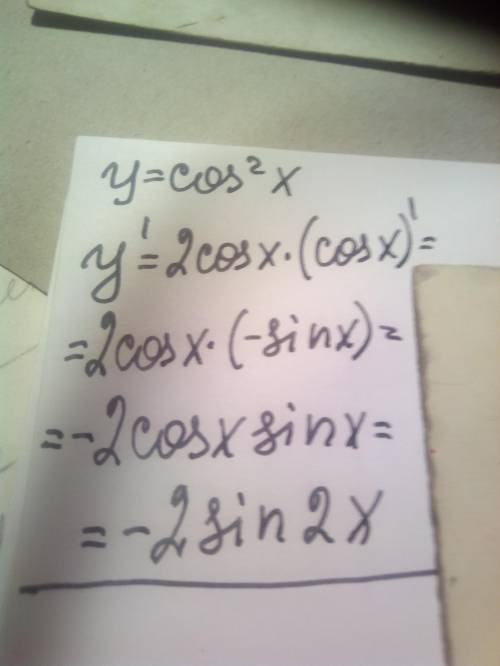 y=cos²x
y'=2cosx·(cosx)'=
=2cosx·(-sinx)=
=-2cosxsinx=
=-2sin2x